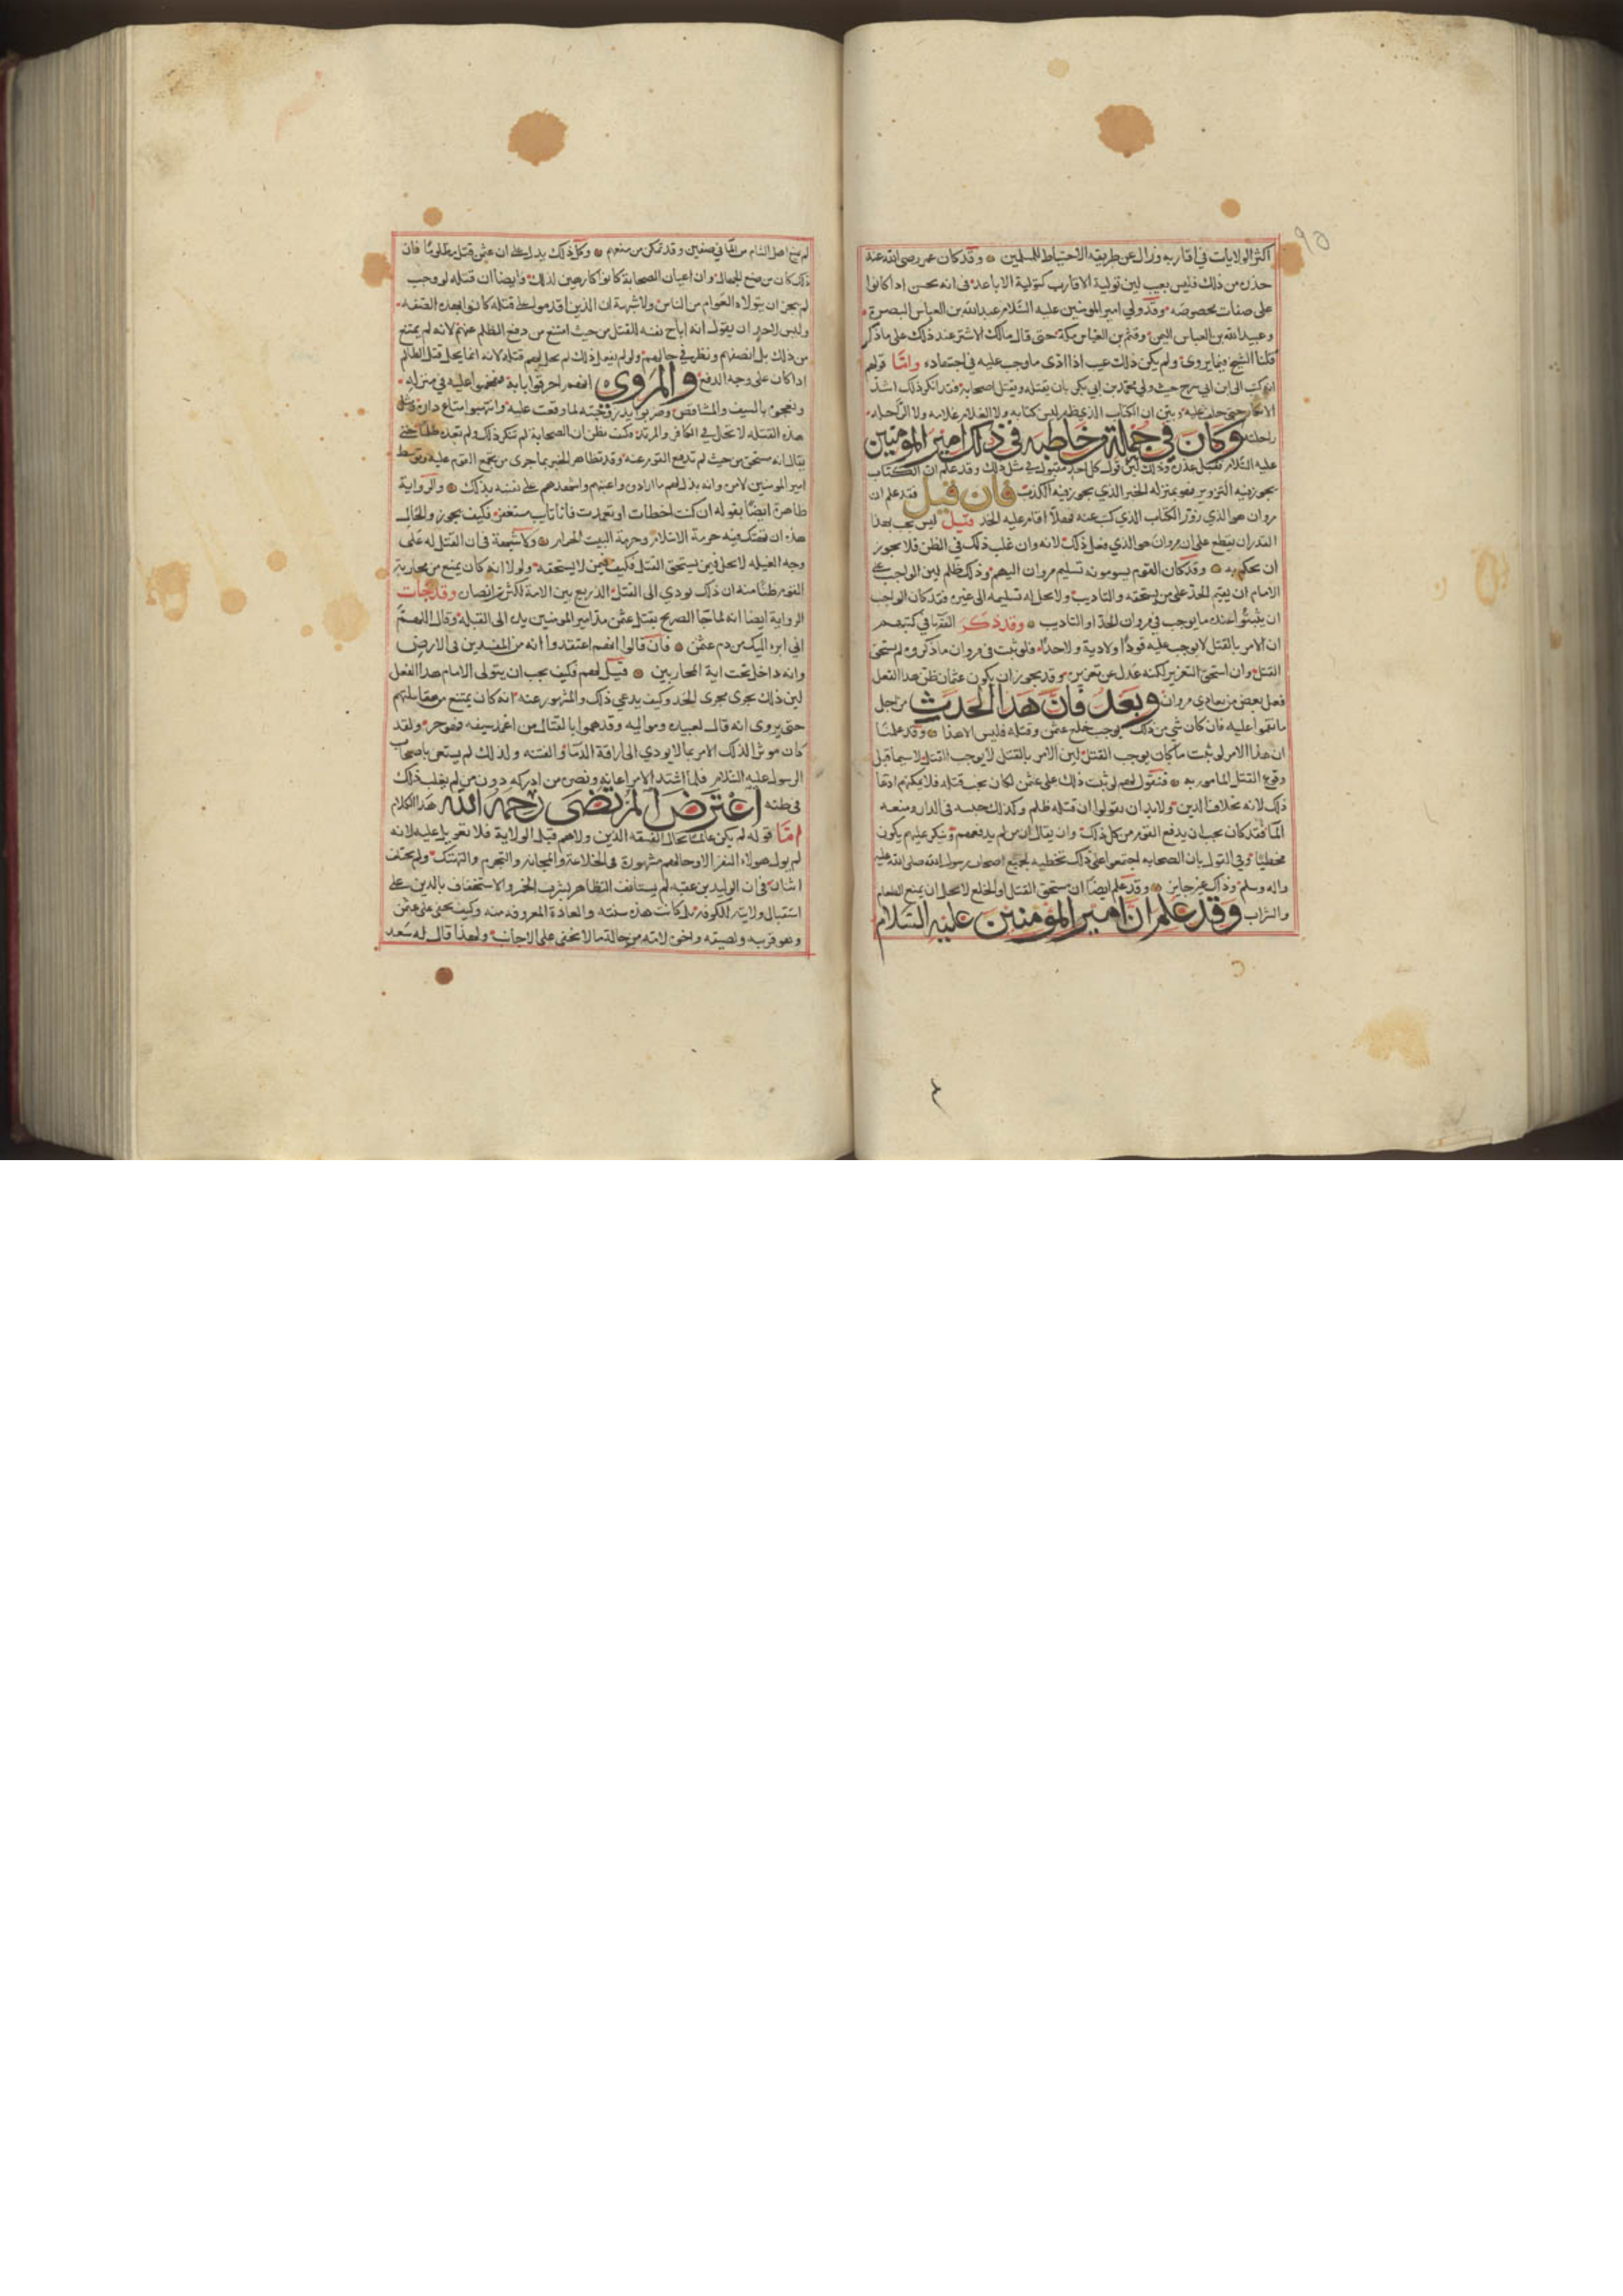 ٩٥
اكثر الولايات في اقاربه وزال عن طريقة الاحتياط للمسلمين وقد كان عمر رضي الله عنه
حذره من ذلك فليس بعيب لين تولية الاقارب كتولية الاباعد في انه يحسن اذا كانوا
على صفات مخصوصه وقد ولي امير المومنين عليه السلام عبد الله بن العباس البصرة
وعبيد الله بن العباس اليمن وقثم بن العباس مكة حتى قال مالك الاشتر عند ذلك على ماذا
قتلنا الشيخ فيما يروى ولم يكن ذلك عيب اذا ادى ما وجب عليه في اجتهاده واما قولهم
انه كتب الى ابن ابي سرح حيث ولي محمد بن ابي بكر بان يقتله ويقتل اصحابه فقد انكر ذلك اشد
الانكار حتى حلف عليه وبين ان الكتاب الذي ظهر ليس كتابه ولا الغلام غلامه ولا الراحله
راحلته وكان في جملة من خاطبه في ذلك امير المؤمنين
عليه السلام فقبل عذره وذلك لين قول كل احد مقبول في مثل ذلك وقد علم ان الكتاب
يجوز فيه التزوير فهو بمنزله الخبر الذي يجوز فيه الكذب فان قيل فقد علم ان
مروان هو الذي زور الكتاب الذي كتب عنه فهلا اقام عليه الحد قيل ليس يجب بهذا
القدر ان يقطع على ان مروان هو الذي فعل ذلك لانه وان غلب ذلك في الظن فلا يجوز
ان يحكم به وقد كان القوم يسومونه تسليم مروان اليهم وذلك ظلم لين الواجب على
الامام ان يقيم الحد على من يستحقه والتاديب ولا يحل له تسليمه الى غيره فقد كان الواجب
ان يثبتوا عنده ما يوجب في مروان الحد او التاديب وقد ذكر الفقها في كتبهم
ان الامر بالقتل لا يوجب عليه قودا ولا دية ولا حدا فلو ثبت في مروان ما ذكروه لم يستحق
القتل وان استحق التعزير لكنه عدل عن تعزيره وقد يجوز ان يكون عثمان ظن هذا الفعل
فعل بعض من يعادي مروان وبعد فان هذا الحدث من اجل
ما نقموا عليه فان كان شي من ذلك يوجب خلع عثمن وقتله فليس الا هذا وقد علمنا
ان هذا الامر لو ثبت ما كان يوجب القتل لين الامر بالقتل لا يوجب القتل لا سيما قبل
وقوع القتل المامور به فنقول لهم لو ثبت ذلك على عثمن لكان يجب قتله فلا يمكنهم ادعا
ذلك لانه بخلاف الدين ولا بد ان يقولوا ان قتله ظلم وكذلك حبسه في الدار ومنعه
الما فقد كان يجب ان يدفع القوم من كل ذلك وان يقال ان من لم يدفعهم وينكر عليهم يكون
مخطيا وفي القول بان الصحابه اجتمعوا على ذلك تخطيه لجميع اصحاب رسول الله صلى الله عليه
واله وسلم وذلك غير جايز وقد علم ايضا ان مستحق القتل او الخلع لا يحل ان يمنع الطعام
والشراب وقد علم ان امير المؤمنين عليه السلام
لم يمنع اهل الشام من الما في صفين وقد تمكن من منعهم وكل ذلك يدل على ان عثمن قتل مظلوما فان
ذلك كان من صنع الجهال وان اعيان الصحابة كانوا كارهين لذلك وايضا ان قتله لو وجب
لم يجز ان يتولاه العوام من الناس ولا شبهة ان الذين اقدموا على قتله كانوا بهذه الصفه
وليس لاحد ان يقول انه اباح نفسه للقتل من حيث امتنع من دفع الظلم عنهم لانه لم يمتنع
من ذلك بل انصفهم ونظر في حالهم ولو لم يفعل ذلك لم يحل لهم قتله لانه انما يحل قتل الظالم
اذا كان على وجه الدفع والمروى انهم احرقوا بابه وهجموا عليه في منزله
وبعجوه بالسيف والمشاقص وضربوا يد زوجته لما وقعت عليه وانتهبوا متاع داره ومثل
هذه القتله لا تحل في الكافر والمرتد فكيف يظن ان الصحابة لم تنكر ذلك ولم تعده ظلما حتى
يقال انه مستحق من حيث لم تدفع القوم عنه وقد تظاهر الخبر بما جرى من تجمع القوم عليه وتوسط
امير المومنين لامرهم وانه بذل لهم ما ارادوه واعتبهم واشهدهم على نفسه بذلك والرواية
ظاهرة ايضا بقوله ان كنت اخطات او تعمدت فانا تايب مستغفر فكيف يجوز والحال
هذه ان تهتك فيه حرمة الاسلام وحرمة البيت الحرام ولا شبهة في ان القتل له على
وجه الغيله لا يحل فيمن يستحق القتل فكيف فيمن لا يستحقه ولولا انه كان يمنع من محاربة
القوم ظنا منه ان ذلك يودي الى القتل الذريع بين الامة لكثر من انصاره وقد جات
الرواية ايضا انه لما جا الصريخ بقتل عثمن مد امير المومنين يده الى القبله وقال اللهم
اني ابرء اليك من دم عثمن فان قالوا انهم اعتقدوا انه من المفسدين في الارض
وانه داخل تحت اية المحاربين قيل لهم فكيف يجب ان يتولى الامام هذا الفعل
لين ذلك يجرى مجرى الحد وكيف يدعي ذلك والمشهور عنه انه كان يمتنع من مقاتلتهم
حتى يروى انه قال لعبيده ومواليه وقد هموا بالقتال من اغمد سيفه فهو حر ولقد
كان موثرا لذلك الامر بما لا يودي الى اراقة الدما والفتنه ولذلك لم يستعن باصحاب
الرسول عليه السلام فلما اشتد الامر اعانه ونصره من ادركه دون من لم يغلب ذلك
في ظنه اعترض المرتضى رحمه الله هذا الكلام
اما قوله لم يكن عالما بحال الفسقه الذين ولاهم قبل الولاية فلا تعويل عليه لانه
لم يول هولاء النفر الا وحالهم مشهورة في الخلاعة والمجانة والتجرم والتهتك ولم يختلف
اثنان في ان الوليد بن عقبه لم يستانف التظاهر بشرب الخمر والاستخفاف بالدين على
استقبال ولايته للكوفه بل كانت هذه سنته والعادة المعروفه منه وكيف يخفى على عثمن
وهو قريبه ولصيقه واخوه لامه من حاله ما لا يخفى على الاجانب ولهذا قال له سعد